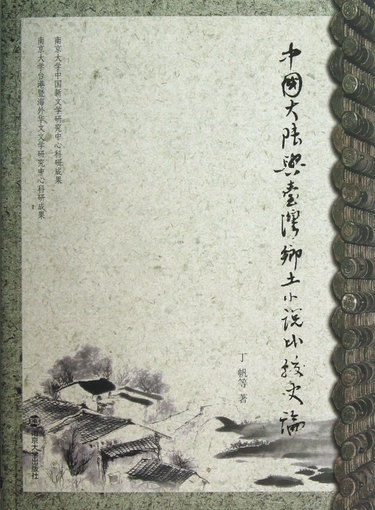 中國大陸與臺灣鄉土小说比較史論
丁帆等 著
南京大学中国新文学研究中心科研成果
南京大学台港暨海外华文文学研究中心科研成果
南京大学出版社